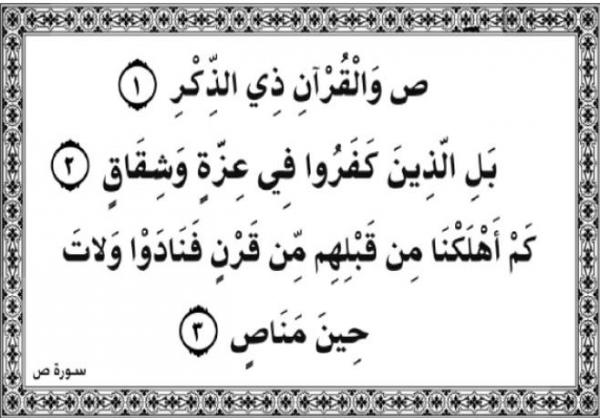 ص وَالْقُرْآنِ ذِي الذِّكْرِ ١
بَلِ الَّذِينَ كَفَرُوا فِي عِزَّةٍ وَشِقَاقٍ ٢
كَمْ أَهْلَكْنَا مِن قَبْلِهِم مِّن قَرْنٍ فَنَادَوْا وَلاتَ
حِينَ مَنَاصٍ ٣
سورة ص